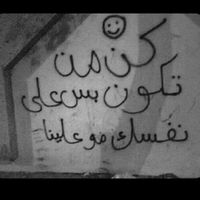 كن من
تكون بس على
نفسك مو علينا